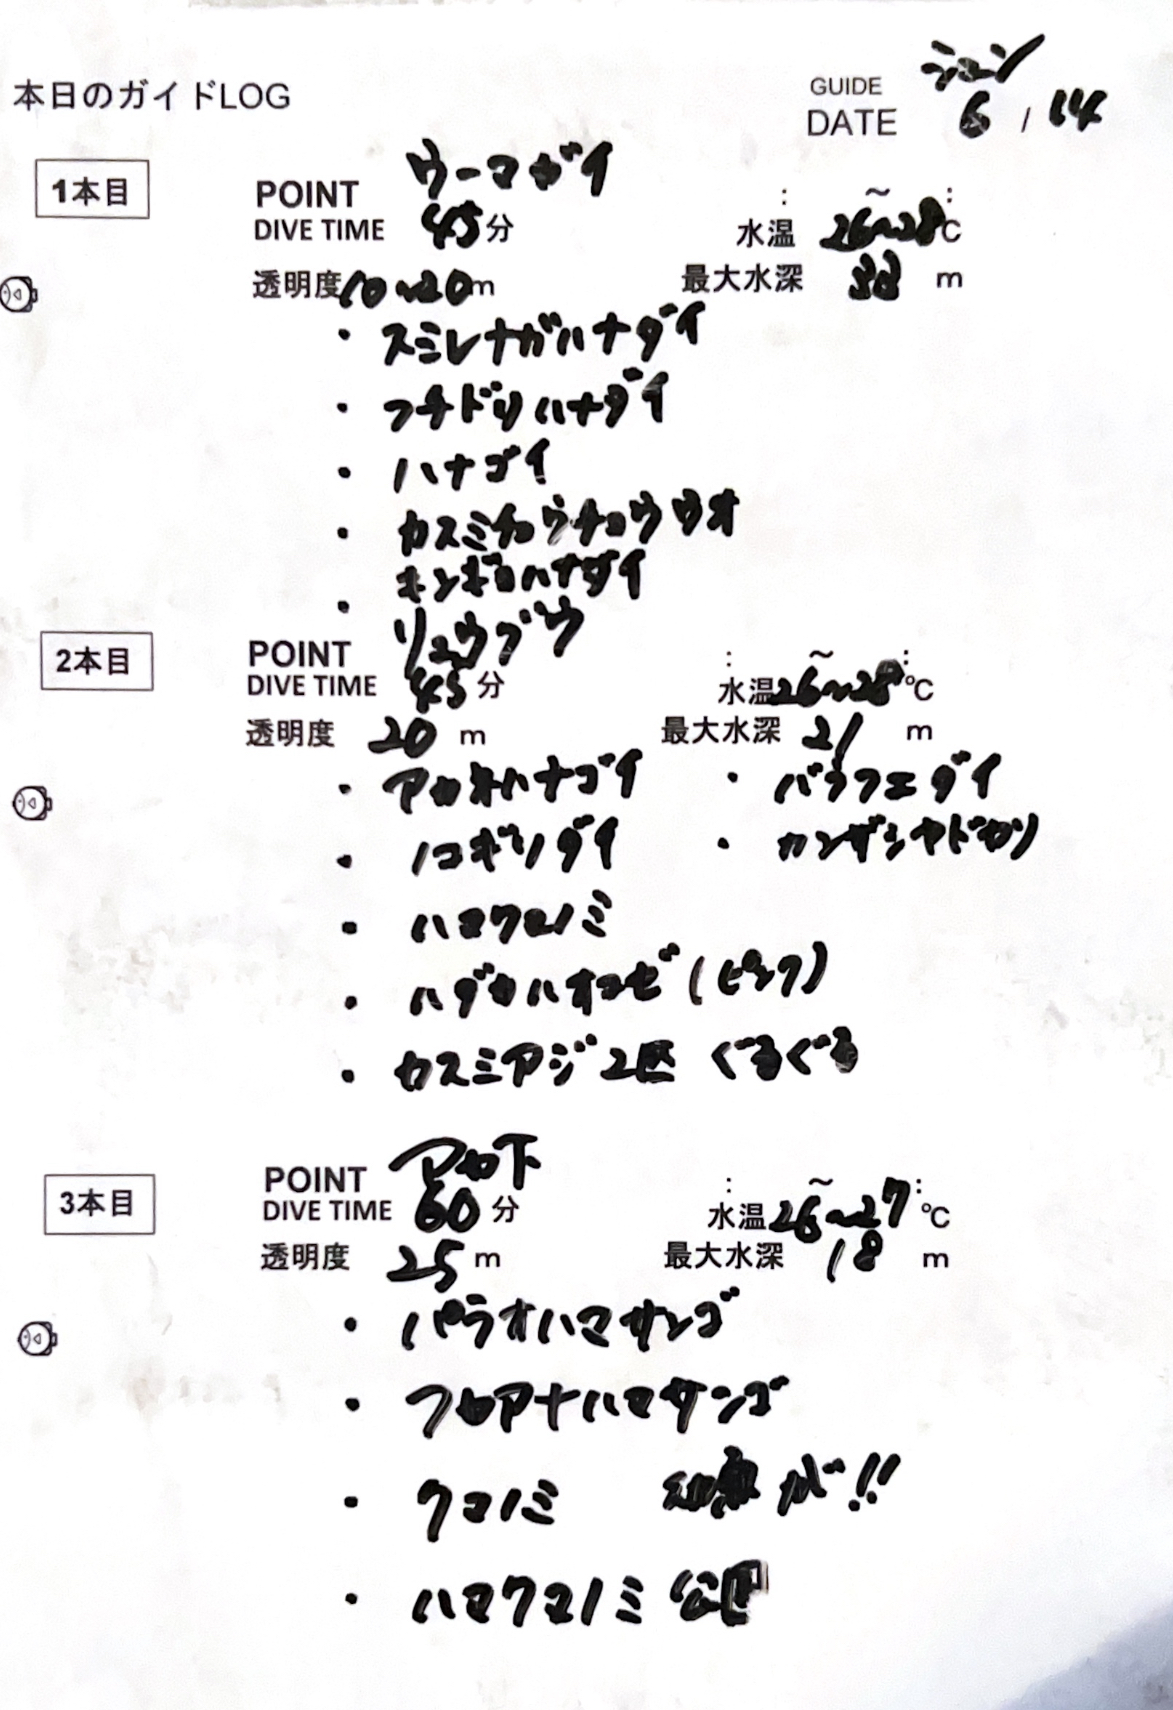 本日のガイドLOG
GUIDE ジュン
DATE 6 / 14
1本目
POINT ウーマガイ : ～ :
DIVE TIME 45分 水温 26~28℃
透明度 10~20m 最大水深 33 m
・ スミレナガハナダイ
・ フチドリハナダイ
・ ハナゴイ
・ カスミチョウチョウウオ
・ キンギョハナダイ
2本目
POINT リュウグウ : ～ :
DIVE TIME 45 分 水温26~28℃
透明度 20 m 最大水深 21 m
・ アカネハナゴイ ・ バラフエダイ
・ ノコギリダイ ・ カンザシヤドカリ
・ ハマクマノミ
・ ハダカハオコゼ (ピンク)
・ カスミアジ 2匹 ぐるぐる
3本目
POINT アカ下 : ～ :
DIVE TIME 60 分 水温26~27℃
透明度 25 m 最大水深 18 m
・ パラオハマサンゴ
・ フカアナハマサンゴ
・ クマノミ 幼魚が!!
・ ハマクマノミ 公園